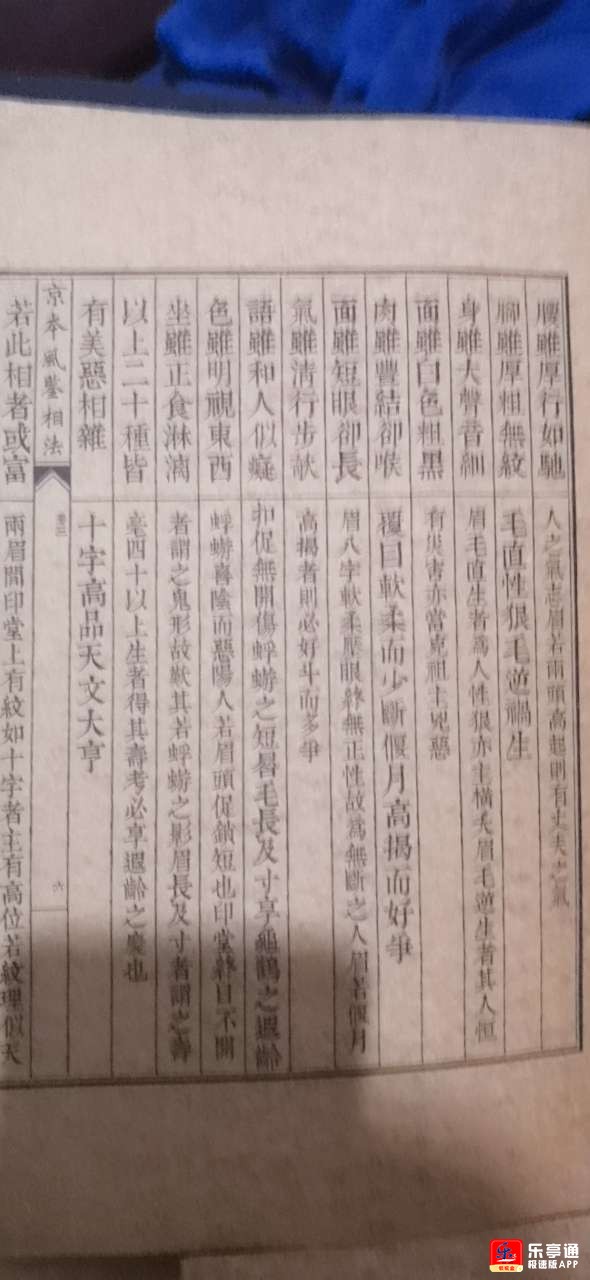 腰雖厚行如馳
腳雖厚粗無紋
身雖大聲音細
面雖白色粗黑
肉雖豐結卻喉
面雖短眼卻長
氣雖清行步欹
語雖和人似癡
色雖明視東西
坐雖正食淋漓
以上二十種皆
有美惡相雜
若此相者或富
人之氣志眉若兩頭高起則有丈夫之氣
毛直性狠毛逆禍生
眉毛直生者爲人性狠亦主橫夭眉毛逆生者其人恒
有災害亦當克祖主兇惡
覆目軟柔而少斷偃月高揭而好爭
眉八字軟柔壓眼終無正性故爲無斷之人眉若偃月
高揭者則必好斗而多爭
扣促無開傷蜉蝣之短晷毛長及寸享龜鶴之遐齡
蜉蝣喜陰而惡陽人若眉頭促鎖短也印堂終日不開
者謂之鬼形故歎其若蜉蝣之影眉長及寸者謂之壽
毫四十以上生者得其壽考必享遐齡之慶也
十字高品天文大亨
京本風鑒相法
卷三
六
兩眉間印堂上有紋如十字者主有高位若紋理似天
乐亭通
极速版APP